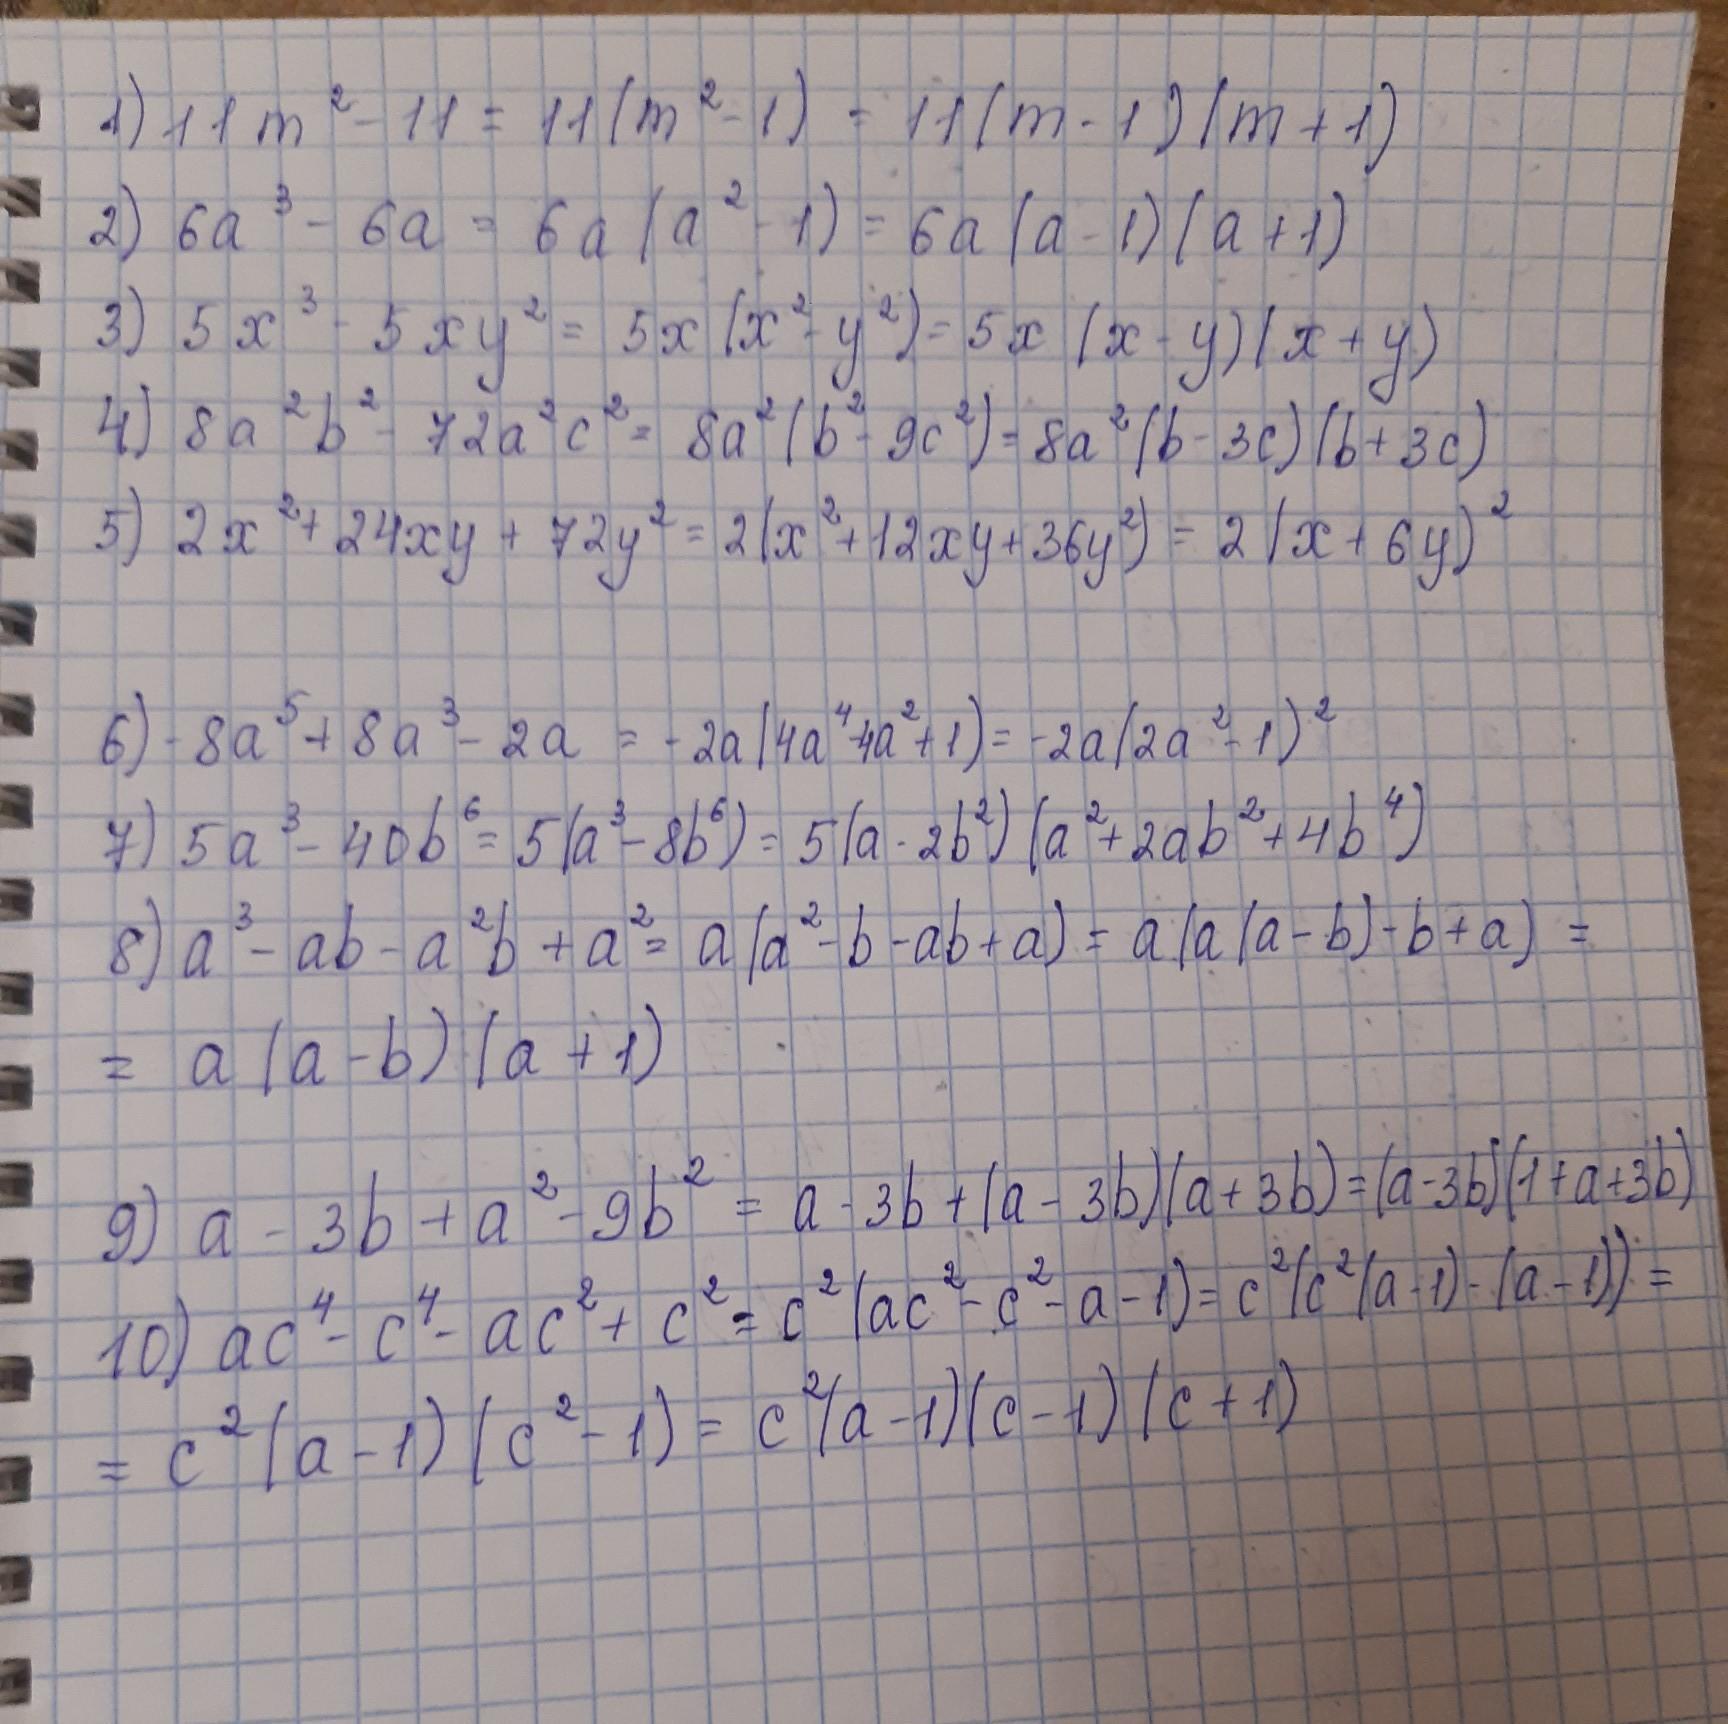 1) 11m² - 11 = 11(m² - 1) = 11(m - 1)(m + 1)
2) 6a³ - 6a = 6a(a² - 1) = 6a(a - 1)(a + 1)
3) 5x³ - 5xy² = 5x(x² - y²) = 5x(x - y)(x + y)
4) 8a²b² - 72a²c² = 8a²(b² - 9c²) = 8a²(b - 3c)(b + 3c)
5) 2x² + 24xy + 72y² = 2(x² + 12xy + 36y²) = 2(x + 6y)²
6) -8a⁵ + 8a³ - 2a = -2a(4a⁴-4a² + 1) = -2a(2a² - 1)²
7) 5a³ - 40b⁶ = 5(a³ - 8b⁶) = 5(a - 2b²)(a² + 2ab² + 4b⁴)
8) a³ - ab - a²b + a² = a(a² - b - ab + a) = a(a(a - b) - b + a) =
= a(a - b)(a + 1)
9) a - 3b + a² - 9b² = a - 3b + (a - 3b)(a + 3b) = (a - 3b)(1 + a + 3b)
10) ac⁴ - c⁴ - ac² + c² = c²(ac² - c² - a - 1) = c²(c²(a - 1) - (a - 1)) =
= c²(a - 1)(c² - 1) = c²(a - 1)(c - 1)(c + 1)